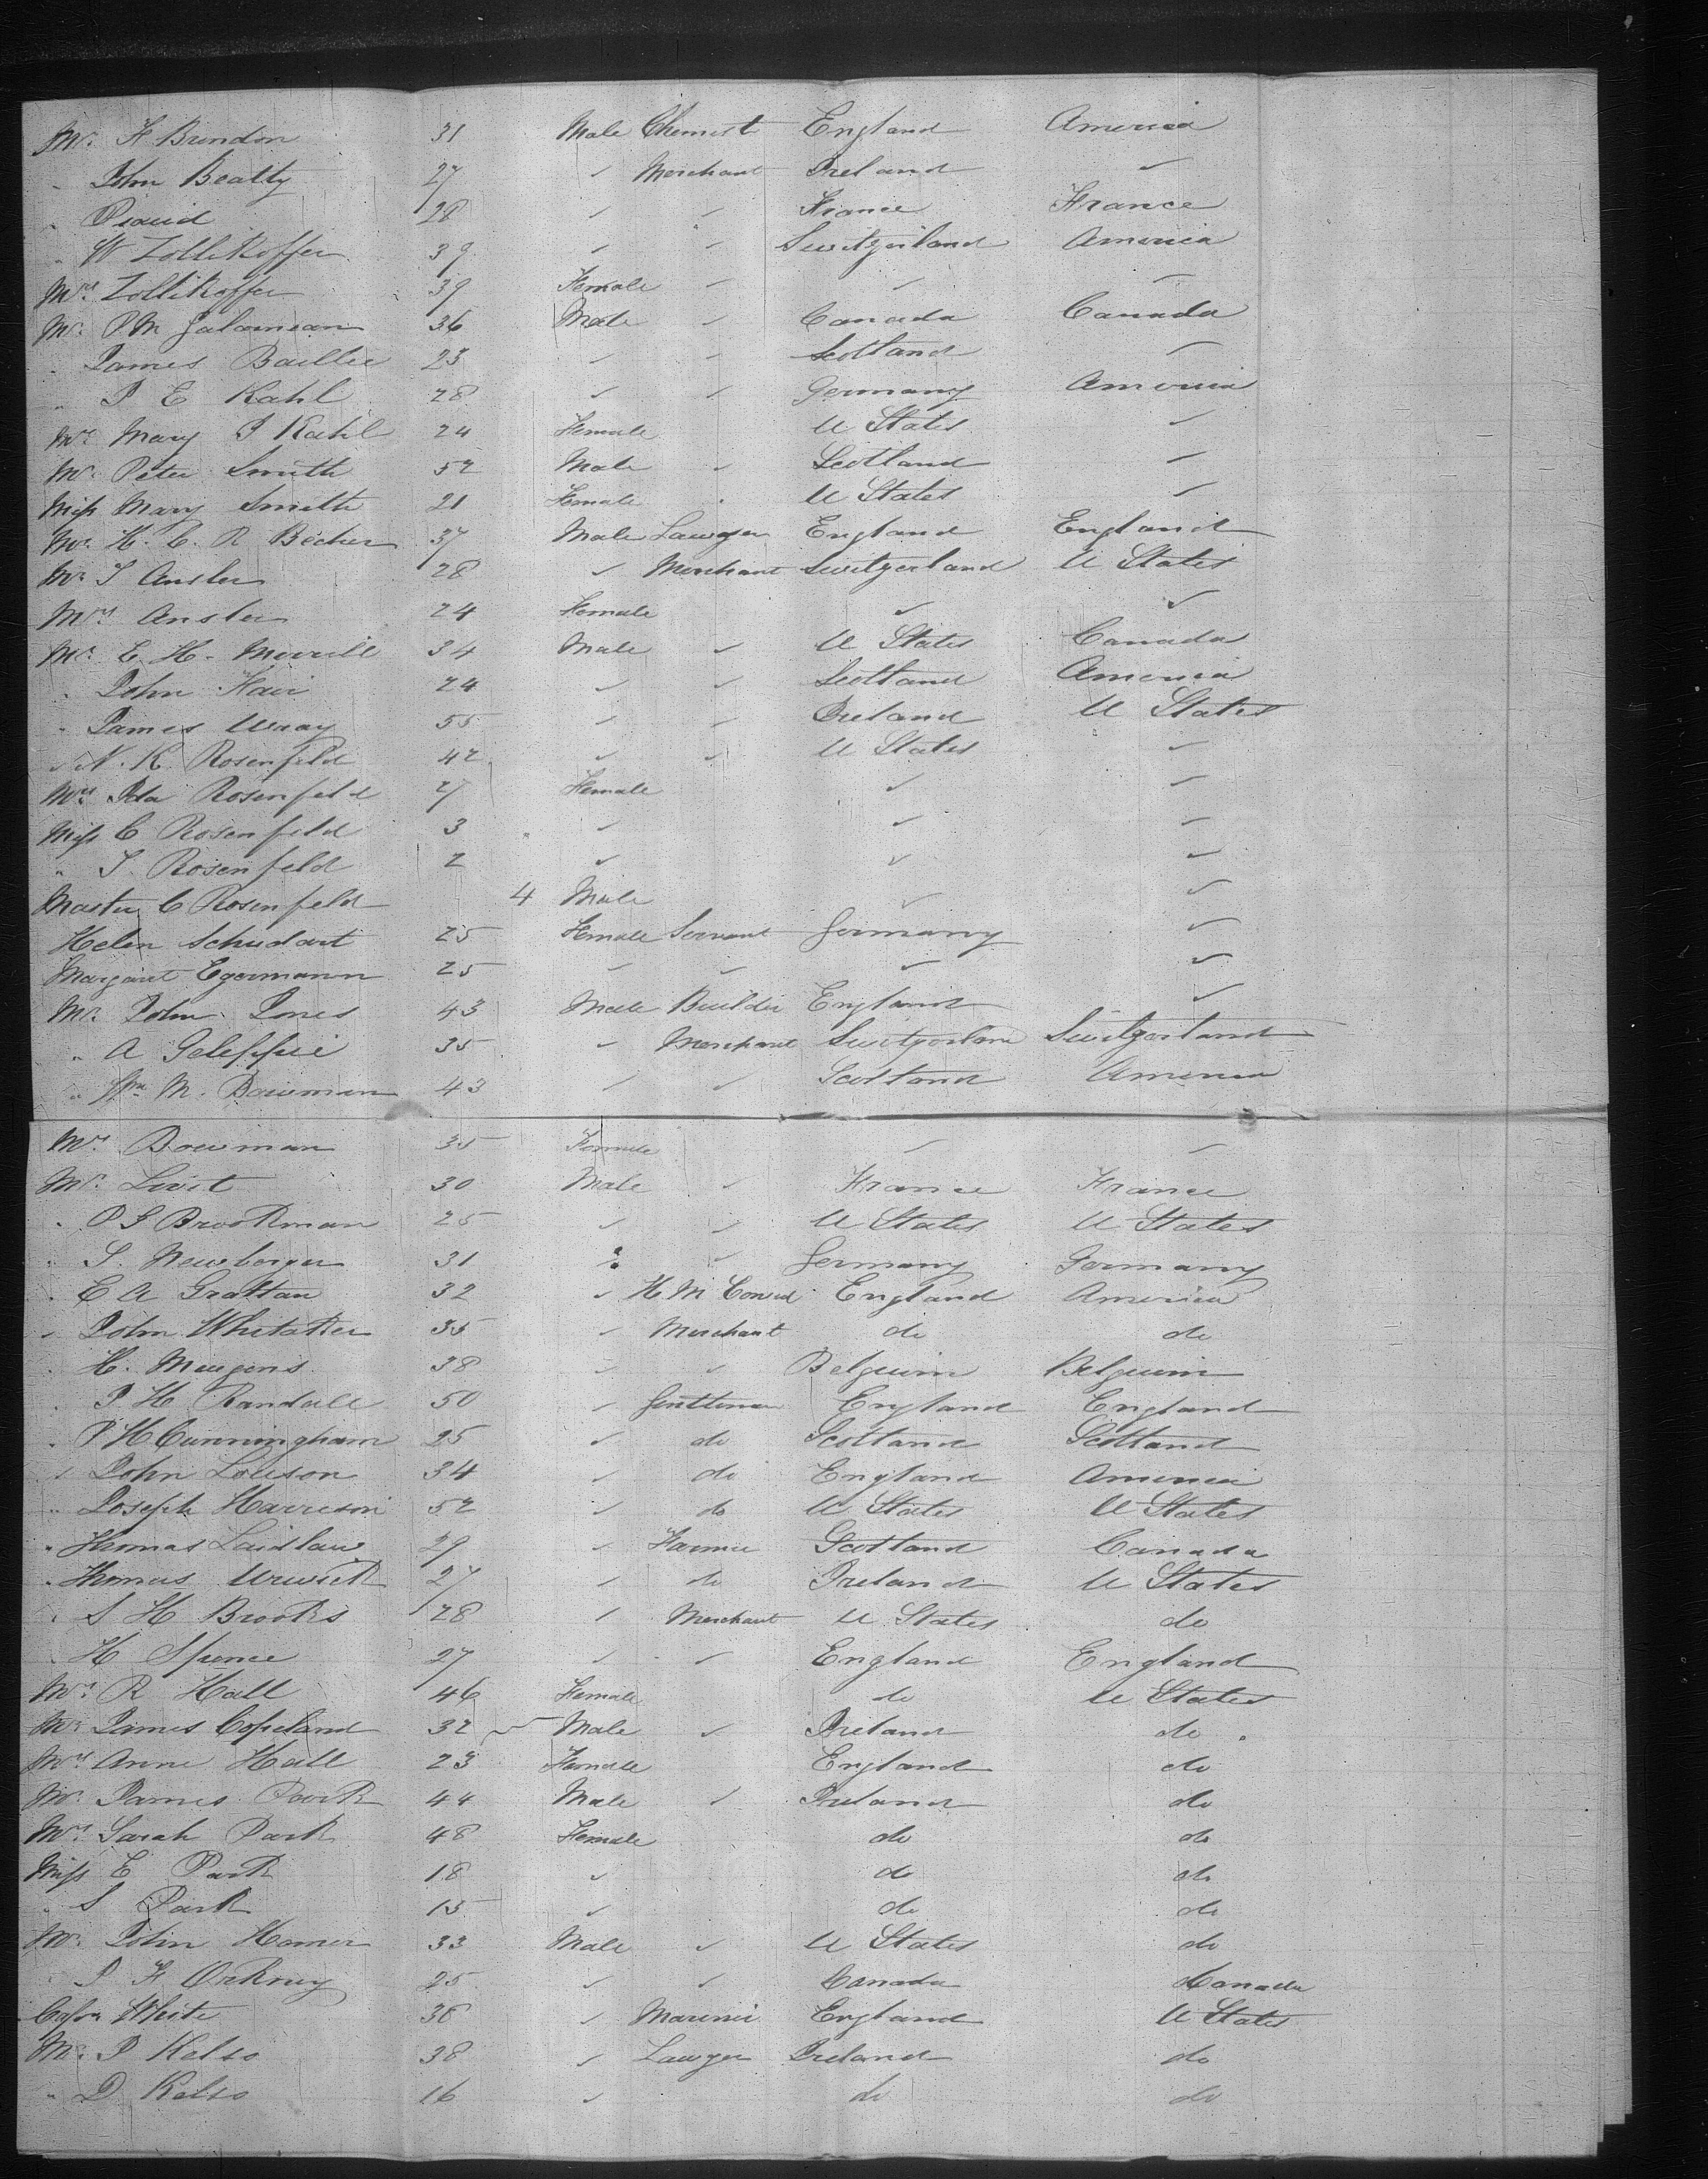 Mr. F Brendon 31 Male Chemist England America
" John Beatty 27 " Merchant Ireland "
" 28 " " France France
" W Zollikoffer 39 " " Switzerland America
Mrs. Zollikoffer 39 Female " " "
Mr. P M Galarneau 36 Male " Canada Canada
" James Baillie 23 " " Scotland "
" J E Kahl 28 " " Germany America
Mrs. Mary J Kahl 24 Female U States "
Mr. Peter Smith 52 Male " Scotland "
Miss Mary Smith 21 Female " U States "
Mr. H. C. R Becher 37 Male Lawyer England England
Mr. J Ansler 28 " Merchant Switzerland U States
Mrs Ansler 24 Female " "
Mr. E. H. Merrill 34 Male " U States Canada
" John Hair 24 " " Scotland America
" James Wray 55 " " Ireland U States
" N. K. Rosenfeld 42 " " U States "
Mrs. Ida Rosenfeld 27 Female " "
Miss C Rosenfeld 3 " " "
" J. Rosenfeld 2 " " "
Master C Rosenfeld 4 Male " "
Helen Schudart 25 Female Servant Germany "
Margaret Egermann 25 " " " "
Mr. John Jones 43 Male Builder England "
" A 35 " Merchant Switzerlan Switzerland
" Wm. M. Bowman 43 " " Scotland America
Mrs. Bowman 35 Female " "
Mr. Livet 30 Male " France France
" P G Brookman 25 " " U States U States
" S. Newberger 31 " " Germany Germany
" E A Grattan 32 " H M Consul England America
" John Whitaker 35 " Merchant do do
" H. 38 " " Belguim Belguim
" J H Randall 50 " Gentleman England England
" J H Cunningham 25 " do Scotland Scotland
" John Lowson 34 " do England America
" Joseph Harrison 52 " do U States U States
" Thomas Laidlaw 29 " Farmer Scotland Canada
" Thomas Urwick 27 " do Ireland U States
" S H Brooks 28 " Merchant U States do
" H Spence 27 " " England England
Mrs. R Hall 46 Female do U States
Mr. James Copeland 32 Male " Ireland do
Mrs Anne Hall 23 Female England do
Mr. James Park 44 Male " Ireland do
Mrs. Sarah Park 48 Female do do
Miss E Park 18 " do do
" S Park 15 " do do
Mr. John Homer 33 Male " U States do
" J F Orkney 25 " " Canada Canada
Captn White 36 " Mariner England U States
Mr. J Kelso 38 " Lawyer Ireland do
" D Kelso 16 " do do